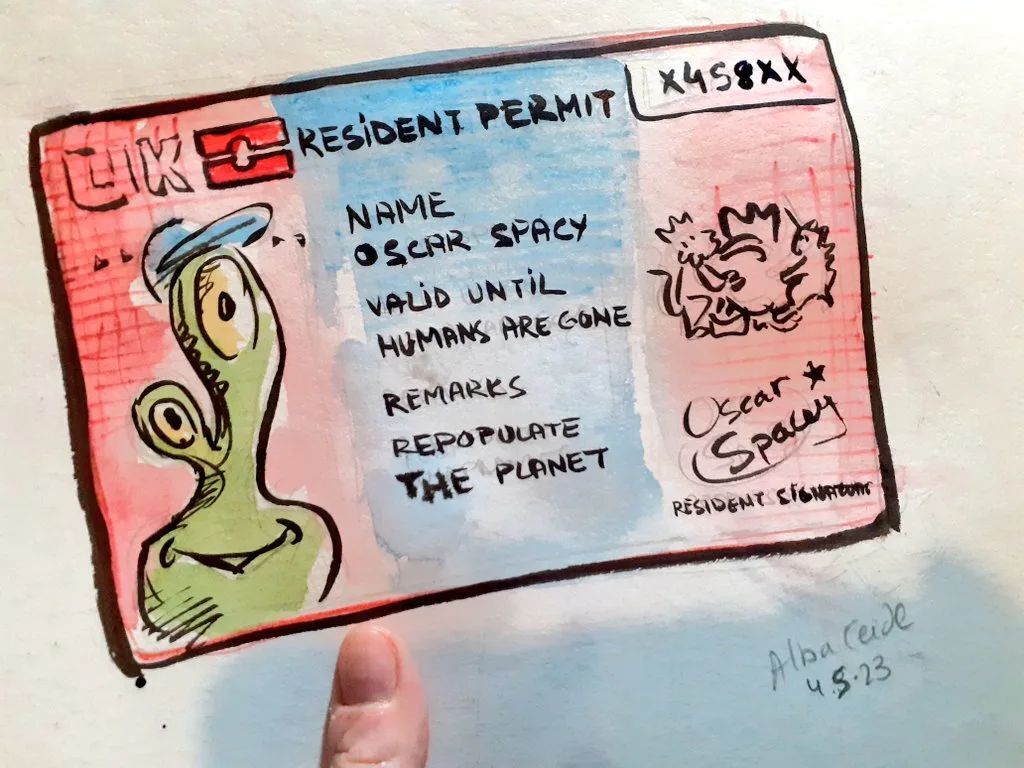 UK
RESIDENT PERMIT
X458XX
NAME
OSCAR SPACY
VALID UNTIL
HUMANS ARE GONE
REMARKS
REPOPULATE
THE PLANET
Oscar
Spacey
RESIDENT SIGNATURE
Alba Ceide
4.5.23